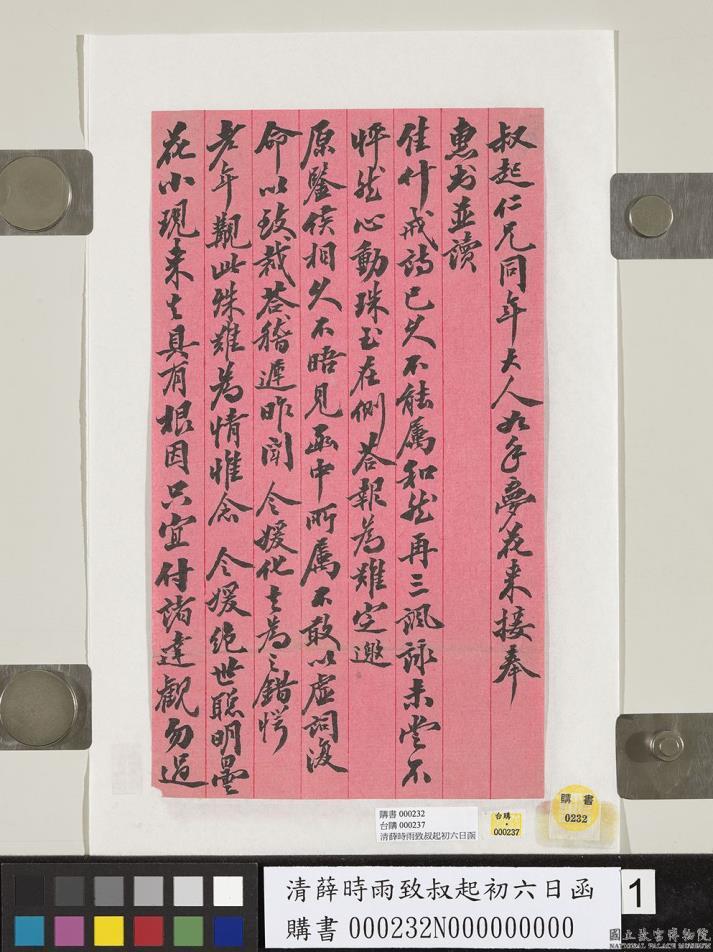 叔起仁兄同年大人如手夢花來接奉
惠书並讀
佳什戒詩已久不能屬和然再三諷詠未嘗不
怦然心動珠玉在側荅報為難定邀
原鑒侯相久不晤見函中所屬不敢以虛詞復
命以致裁荅稽遲昨聞 令媛化去為之錯愕
老年觀此殊難為情惟念 令媛絕世聰明曇
花小現來去具有根因只宜付諸達觀勿過
購書 000232
台購 000237
清薛時雨致叔起初六日函
台購
000237
購書
0232
清薛時雨致叔起初六日函
購書 000232N000000000
1
國立故宮博物院
NATIONAL PALACE MUSEUM